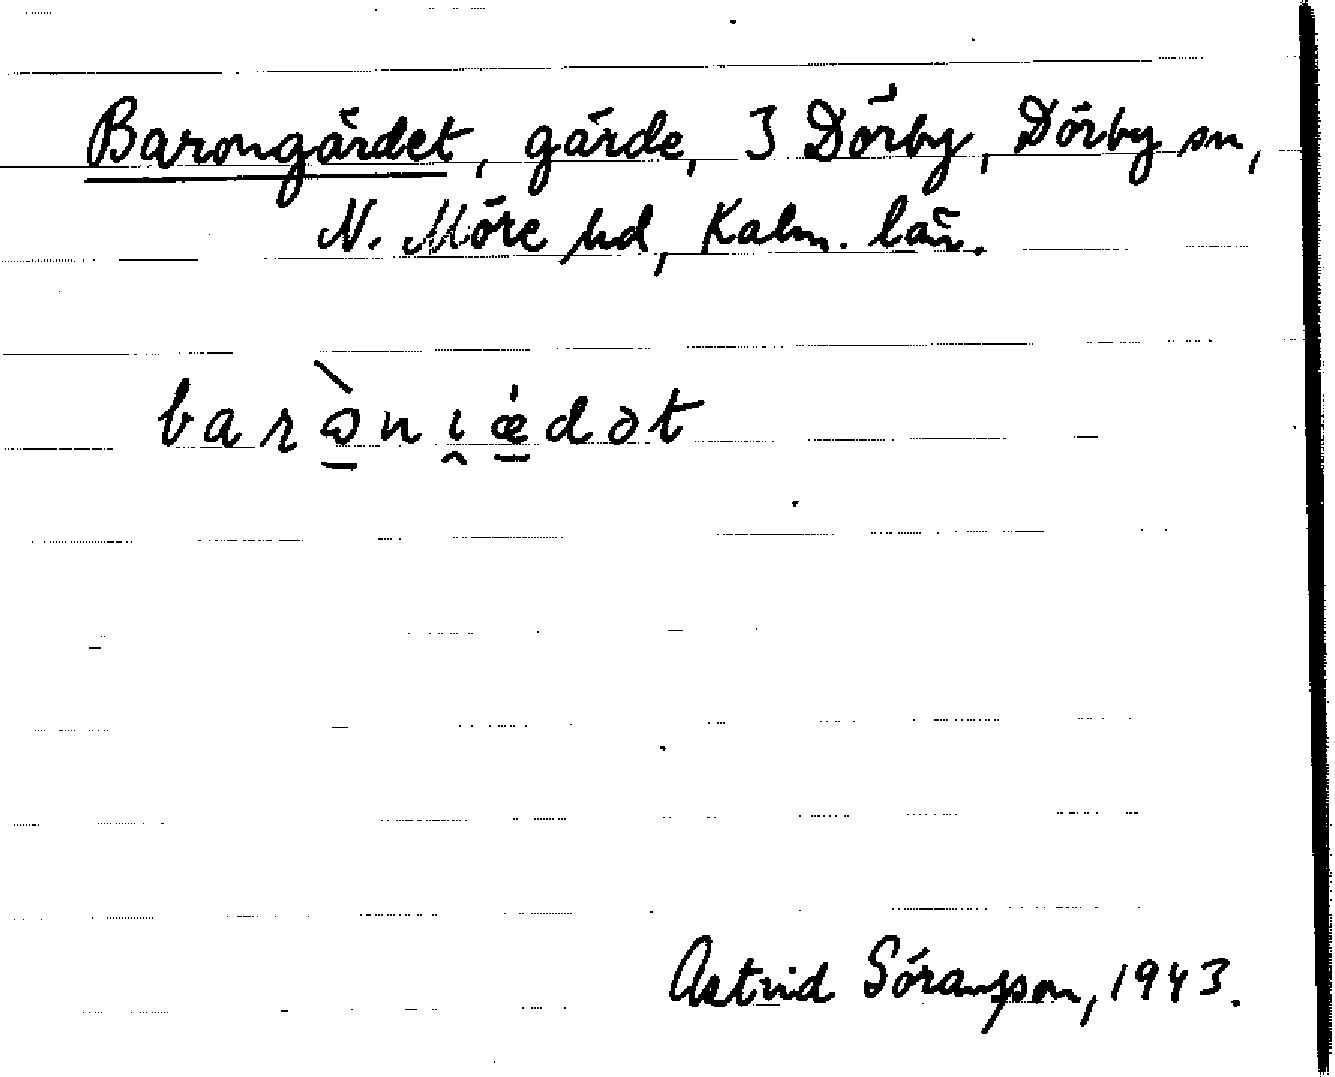 Barongärdet, gärde, 3 Dörby, Dörby sn,
N. Möre hd, Kalm. län.
barò̠nı̯ǽ̠dət
Astrid Göransson, 1943.